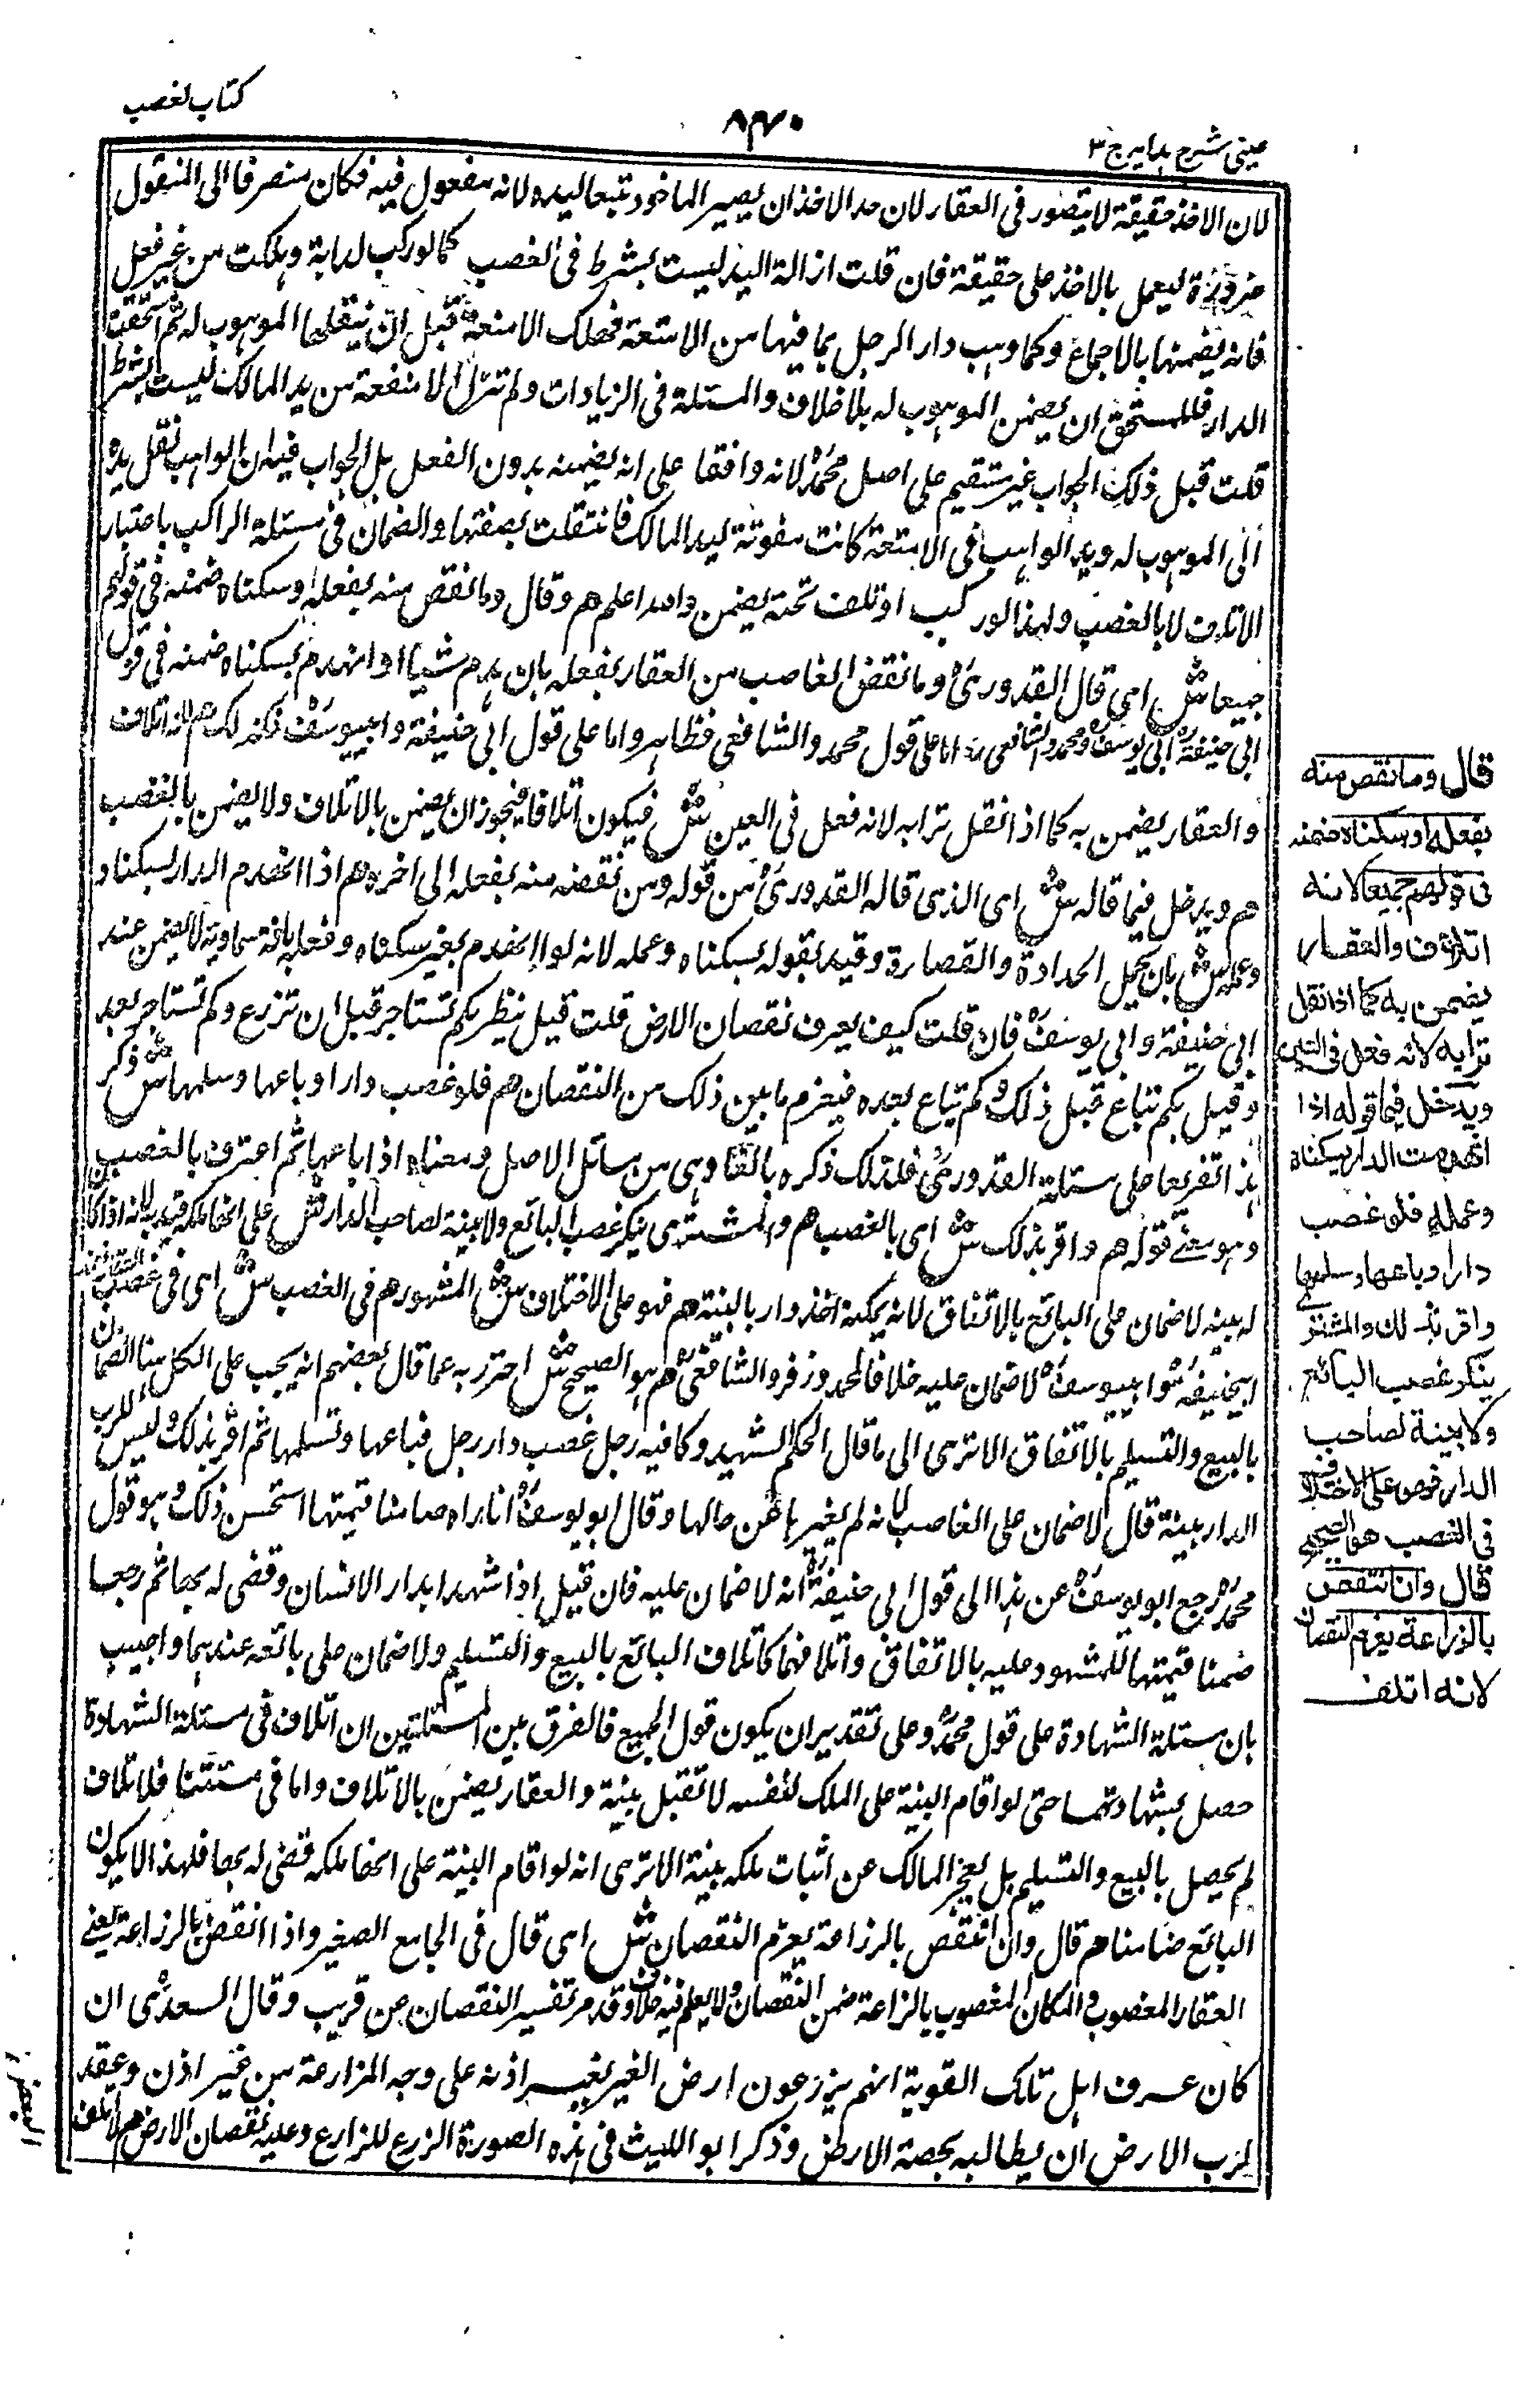 كتاب الغصب
٨٣٠
عینی شرح ہدایہ ج ٣
لان الاخذ حقيقة لا يتصور فى العقار لان حد الاخذ ان يصير الماخوذ تبعا ليده لانه مفعول فيه فكان منصرفا الى المنقول
ضرورة ليعمل بالاخذ على حقيقة فان قلت ازالة اليد ليست بشرط فى الغصب كما لو ركب لدابة وهلكت من غير فعل
فانه يضمنها بالاجماع وكما وهب دار الرجل بما فيها من الامتعة فهلك الامتعة قبل ان ينقلها الموهوب له ثم استحقت
الدار فللمستحق ان يضمن الموهوب له بلا خلاف والمسئلة فى الزيادات ولم تزل الامتعة من يد المالك ليست بشرط
قلت قبل ذلك الجواب غير مستقيم على اصل محمد لانه وافقا على انه يضمنه بدون الفعل بل الجواب فيه ان الواهب نقل يده
الى الموهوب له ويد الواهب فى الامتعة كانت مفوتة ليد المالك فانتقلت بصفتها والضمان فى مسئلة الراكب باعتبار
الاتلاف لا بالغصب ولهذا لو ركب او تلفت تحته يضمن والله اعلم هم وقال وما نقص منه بفعله او سكناه ضمنه فى قولهم
جميعا ش اى قال القدورى وما نقض الغاصب من العقار بفعله بان هدم شيا او انهدم بسكناه ضمنه فى قول
ابى حنيفة وابى يوسف ومحمد والشافعى اما على قول محمد والشافعى فظاهر واما على قول ابى حنيفة وابى يوسف فكذلك هم لانه اتلاف
والعقار يضمن به كما اذا نقل ترابه لانه فعل فى العين ش فيكون اتلافا فيجوز ان يضمن بالاتلاف ولا يضمن بالغصب
هم ويدخل فيما قاله ش اى الذى قاله القدورى من قوله ومن نقصه منه بفعله الى اخره هم اذا انهدم الدار بسكناه
وعمله ش بان يحمل الحدادة والقصارة وقيد بقوله بسكناه وعمله لانه لو انهدم بغير سكناه وفعله بافة سماوية لا يضمن عند
ابى حنيفة وابى يوسف فان قلت كيف يعرف نقصان الارض قلت قيل ينظر بكم تستاجر قبل ان تزرع وكم تستاجر بعد
وقيل بكم تباع قبل ذلك وكم تباع بعده فيغرم ما بين ذلك من النقصان هم فلو غصب دارا وباعها وسلمها ش ذكر
هذا تفريعا على مسئلة القدورى فلذلك ذكره بالفاء وهى من مسائل الاصل ومعناه اذا باعها ثم اعترف بالغصب
وهو معنے قوله هم واقر بذلك ش اى بالغصب هم والمشترى ينكر غصب البائع ولا بينة لصاحب الدار ش على انها ملكه قيد به لانه اذا كا
له بينه لا ضمان على البائع بالاتفاق لانه يمكنه اخذ دار بالبنة هم فهو على الاختلاف ش المشهور هم فى الغصب ش اى فى غصب العقار فعند
ابيحنيفة وابيوسف لا ضمان عليه خلافا لمحمد وزفر والشافعى هم هو الصحيح ش احترز به عما قال بعضهم انه يجب على الكل هنا الضمان
بالبيع والتسليم بالاتفاق الا ترى الى ما قال الحاكم الشهيد وكافيه رجل غصب دار رجل فباعها وتسلمها ثم اقر بذلك وليس للرب
الدار بينة قال لا ضمان على الغاصب لانه لم يغيرها عن حالها وقال ابو يوسف انا اراه ضامنا قيمتها استحسن ذلك وهو قول
محمد رجع ابو يوسف عن هذا الى قول ابى حنيفة انه لا ضمان عليه فان قيل اذا شهد ابدار الانسان وقضى له بها ثم رجعا
ضمنا قيمتها للمشهود عليه بالاتفاق واتلافهما كاتلاف البائع بالبيع والتسليم ولا ضمان على بائعه عندهما واجيب
بان مسئلة الشهادة على قول محمد وعلى تقدير ان يكون قول الجميع فالفرق بين المسئلتين ان اتلاف فى مسئلة الشهادة
حصل بشهادتهما حتى لو اقام البينة على الملك لنفسه لا تقبل بينة والعقار يضمن بالاتلاف واما فى مسئلتنا فلا اتلاف
لم يحصل بالبيع والتسليم بل بعجز المالك عن اثبات ملكه ببينة الا ترى انه لو اقام البينة على انها ملكه قضى له بها فلهذا لا يكون
البائع ضامنا هم قال وان انتقص بالزراعة يغرم النقصان ش اى قال فى الجامع الصغير واذا انقض بالزراعة يعنے
العقار المغصوب والمكان المغصوب بالزاعة ضمن النقصان ولا يعلم فيه خلاف وقد مر تفسير النقصان عن قريب وقال السعدى ان
كان عرف اهل تلك القوية انهم يزرعون ارض الغير بغير اذنه على وجه المزارعة من غير اذن وعقد
لرب الارض ان يطالبه بحصة الارض وذكر ابو الليث فى هذه الصورة الزرع للزارع وعليه نقصان الارض هم لانه اتلف
البعض
قال وما نقص منه
بفعله او سكناه ضمنه
فى قولهم جميعا لانه
اتلاف والعقار
يضمن به كما اذا نقل
ترابه لانه فعل فى العين
ويدخل فيما قوله اذا
انهدمت الدار بسكناه
وعمله فلو غصب
دارا وباعها وسلمها
واقر بذلك والمشترى
ينكر غصب البائع
ولا بينة لصاحب
الدار فهو على الاختلاف
فى الغصب هو الصحيح
قال وان انتقص
بالزراعة يغرم النقصان
لانه اتلف